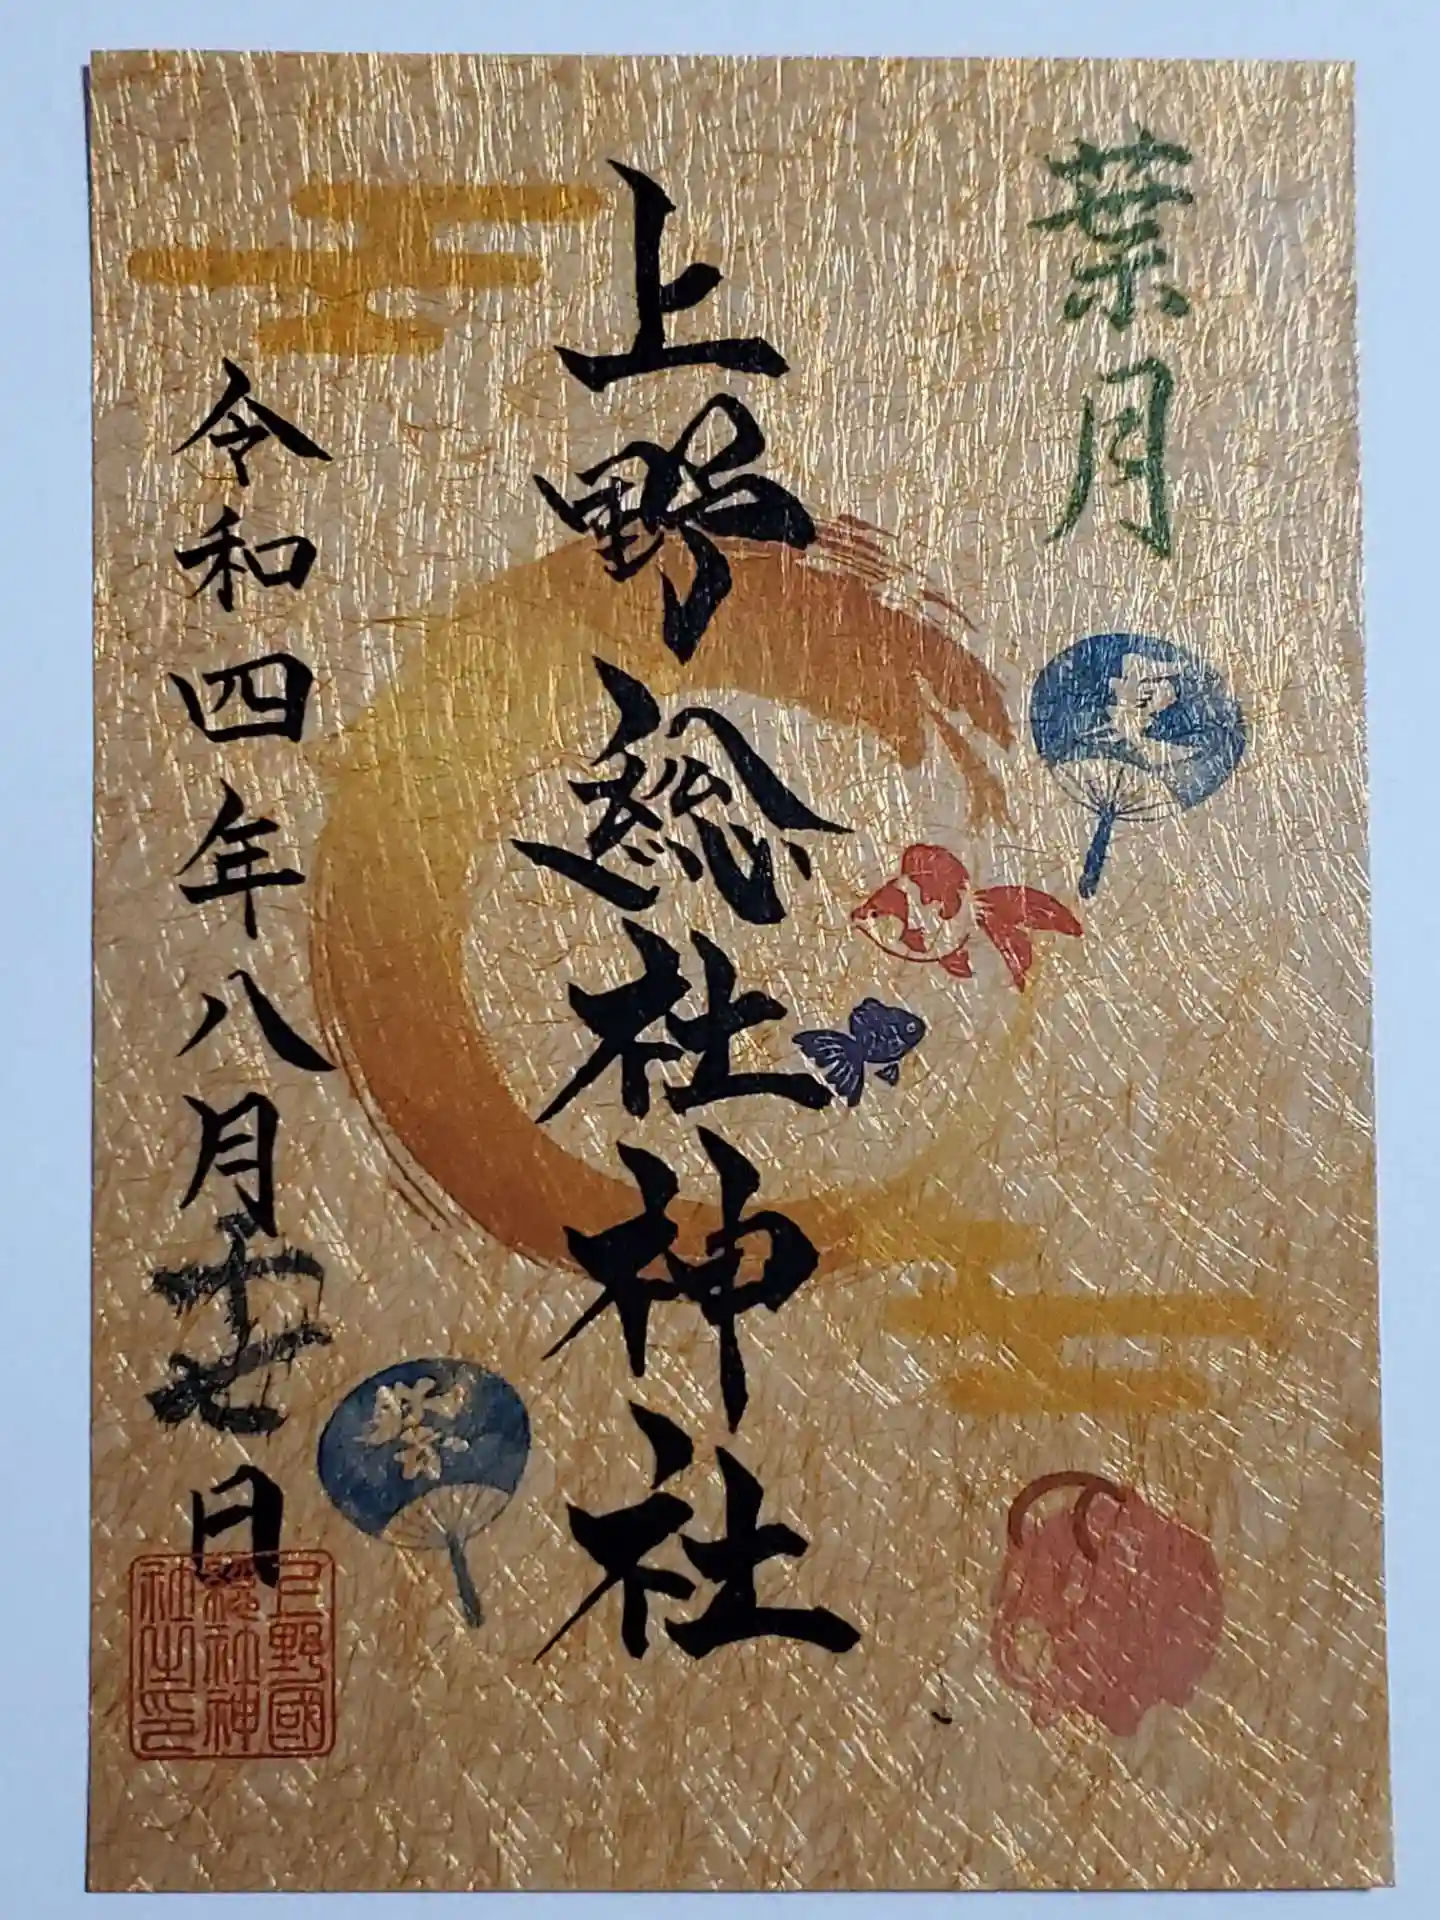 葉月
上野総社神社
令和四年八月十七日
祭
上野國
総社神
社之印